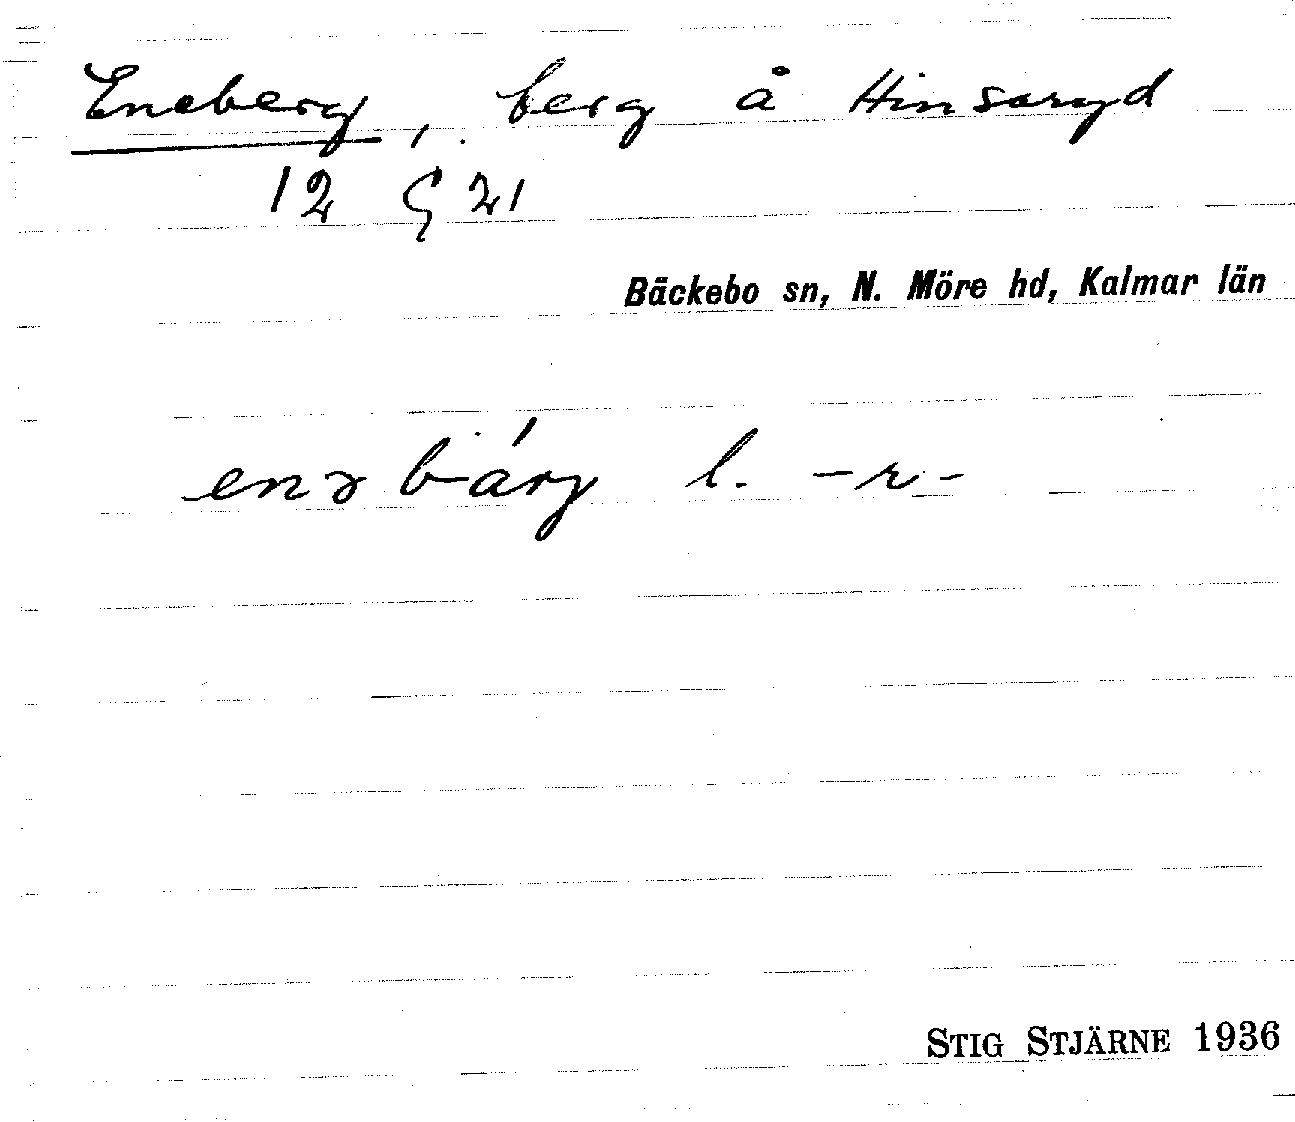 Eneberg, berg å Hinsaryd
12 G 21
Bäckebo sn, N. Möre hd, Kalmar län
enəbárj l. -r-
STIG STJÄRNE 1936